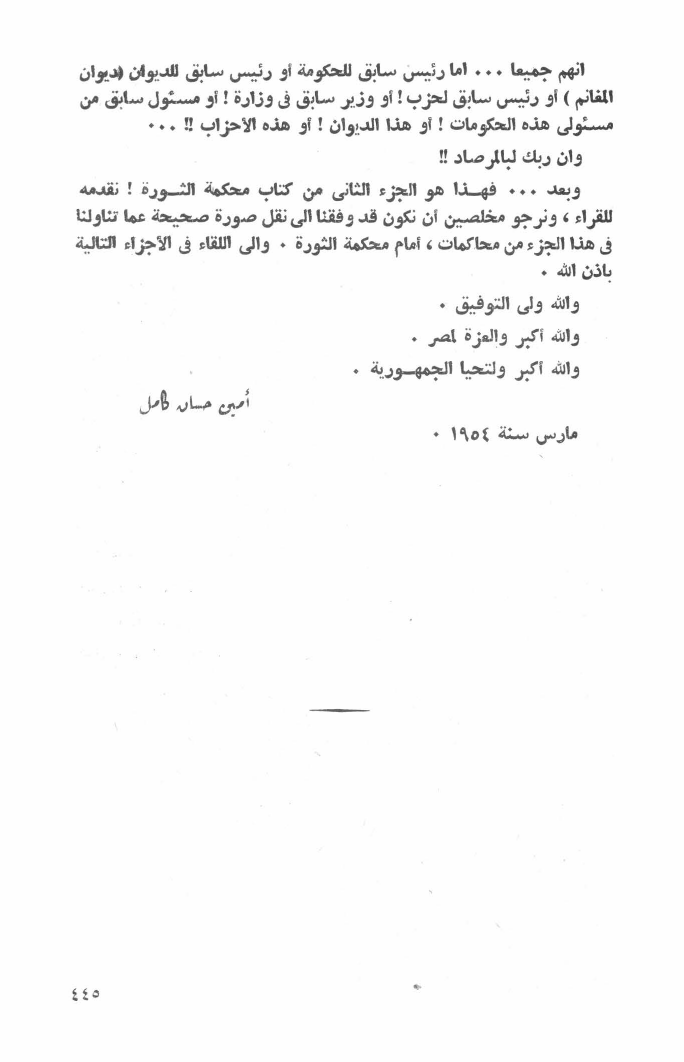 انهم جميعا ... اما رئيس سابق للحكومة أو رئيس سابق للديوان (ديوان
المغانم ) أو رئيس سابق لحزب ! أو وزير سابق فى وزارة ! أو مسئول سابق من
مسئولى هذه الحكومات ! أو هذا الديوان ! أو هذه الأحزاب !! ...
وان ربك لبالمرصاد !!
وبعد ... فهــذا هو الجزء الثانى من كتاب محكمة الثــورة ! نقدمه
للقراء ، ونرجو مخلصين أن نكون قد وفقنا الى نقل صورة صحيحة عما تناولنا
فى هذا الجزء من محاكمات ، أمام محكمة الثورة . والى اللقاء فى الأجزاء التالية
باذن الله .
والله ولى التوفيق .
والله أكبر والعزة لمصر .
والله أكبر ولتحيا الجمهــورية .
أمين حسان كامل
مارس سنة ١٩٥٤ .
٤٤٥